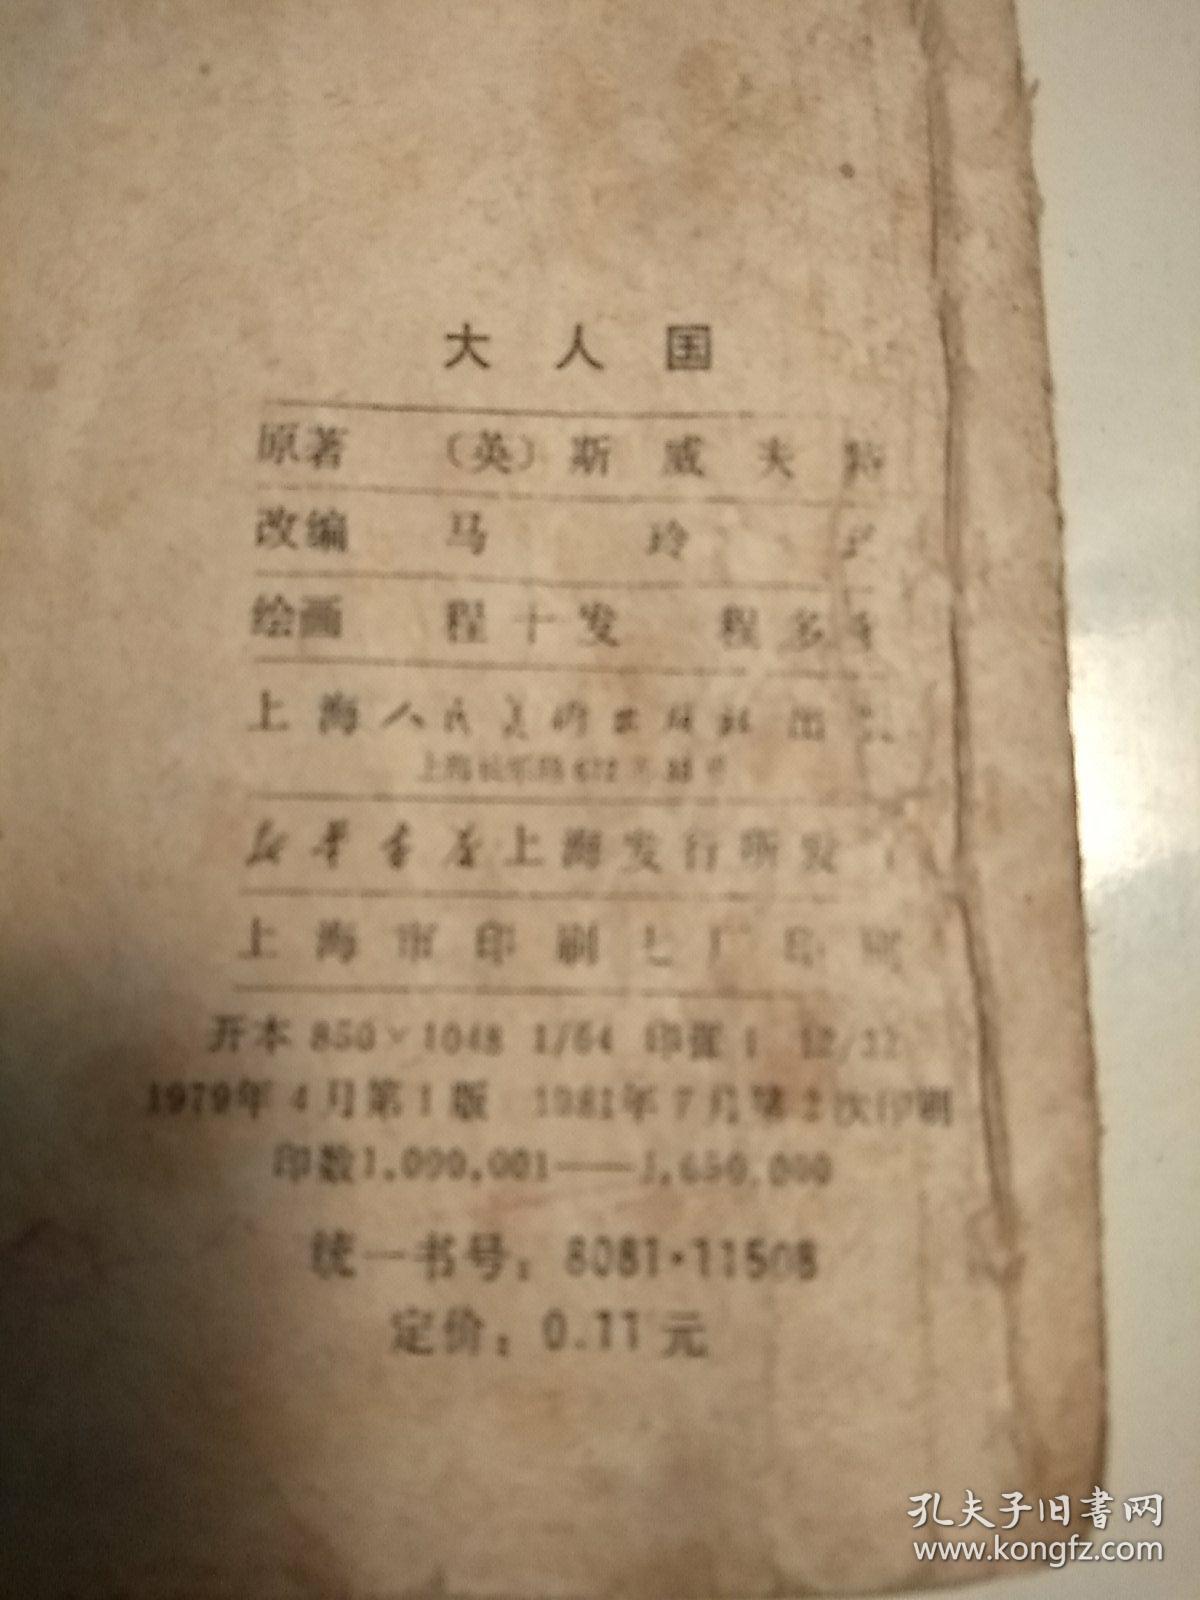 大人国
原著 (英)斯威夫特
改编 马玲
绘画 程十发 程多
上海人民美术出版社出
上海长乐路672弄33号
新华书店上海发行所发
上海市印刷七厂印刷
开本 850×1048 1/64 印张 1 12/32
1979年4月第1版 1981年7月第2次印刷
印数1,090,001——1,650,000
统一书号：8081·11508
定价：0.11元
孔夫子旧书网
www.kongfz.com